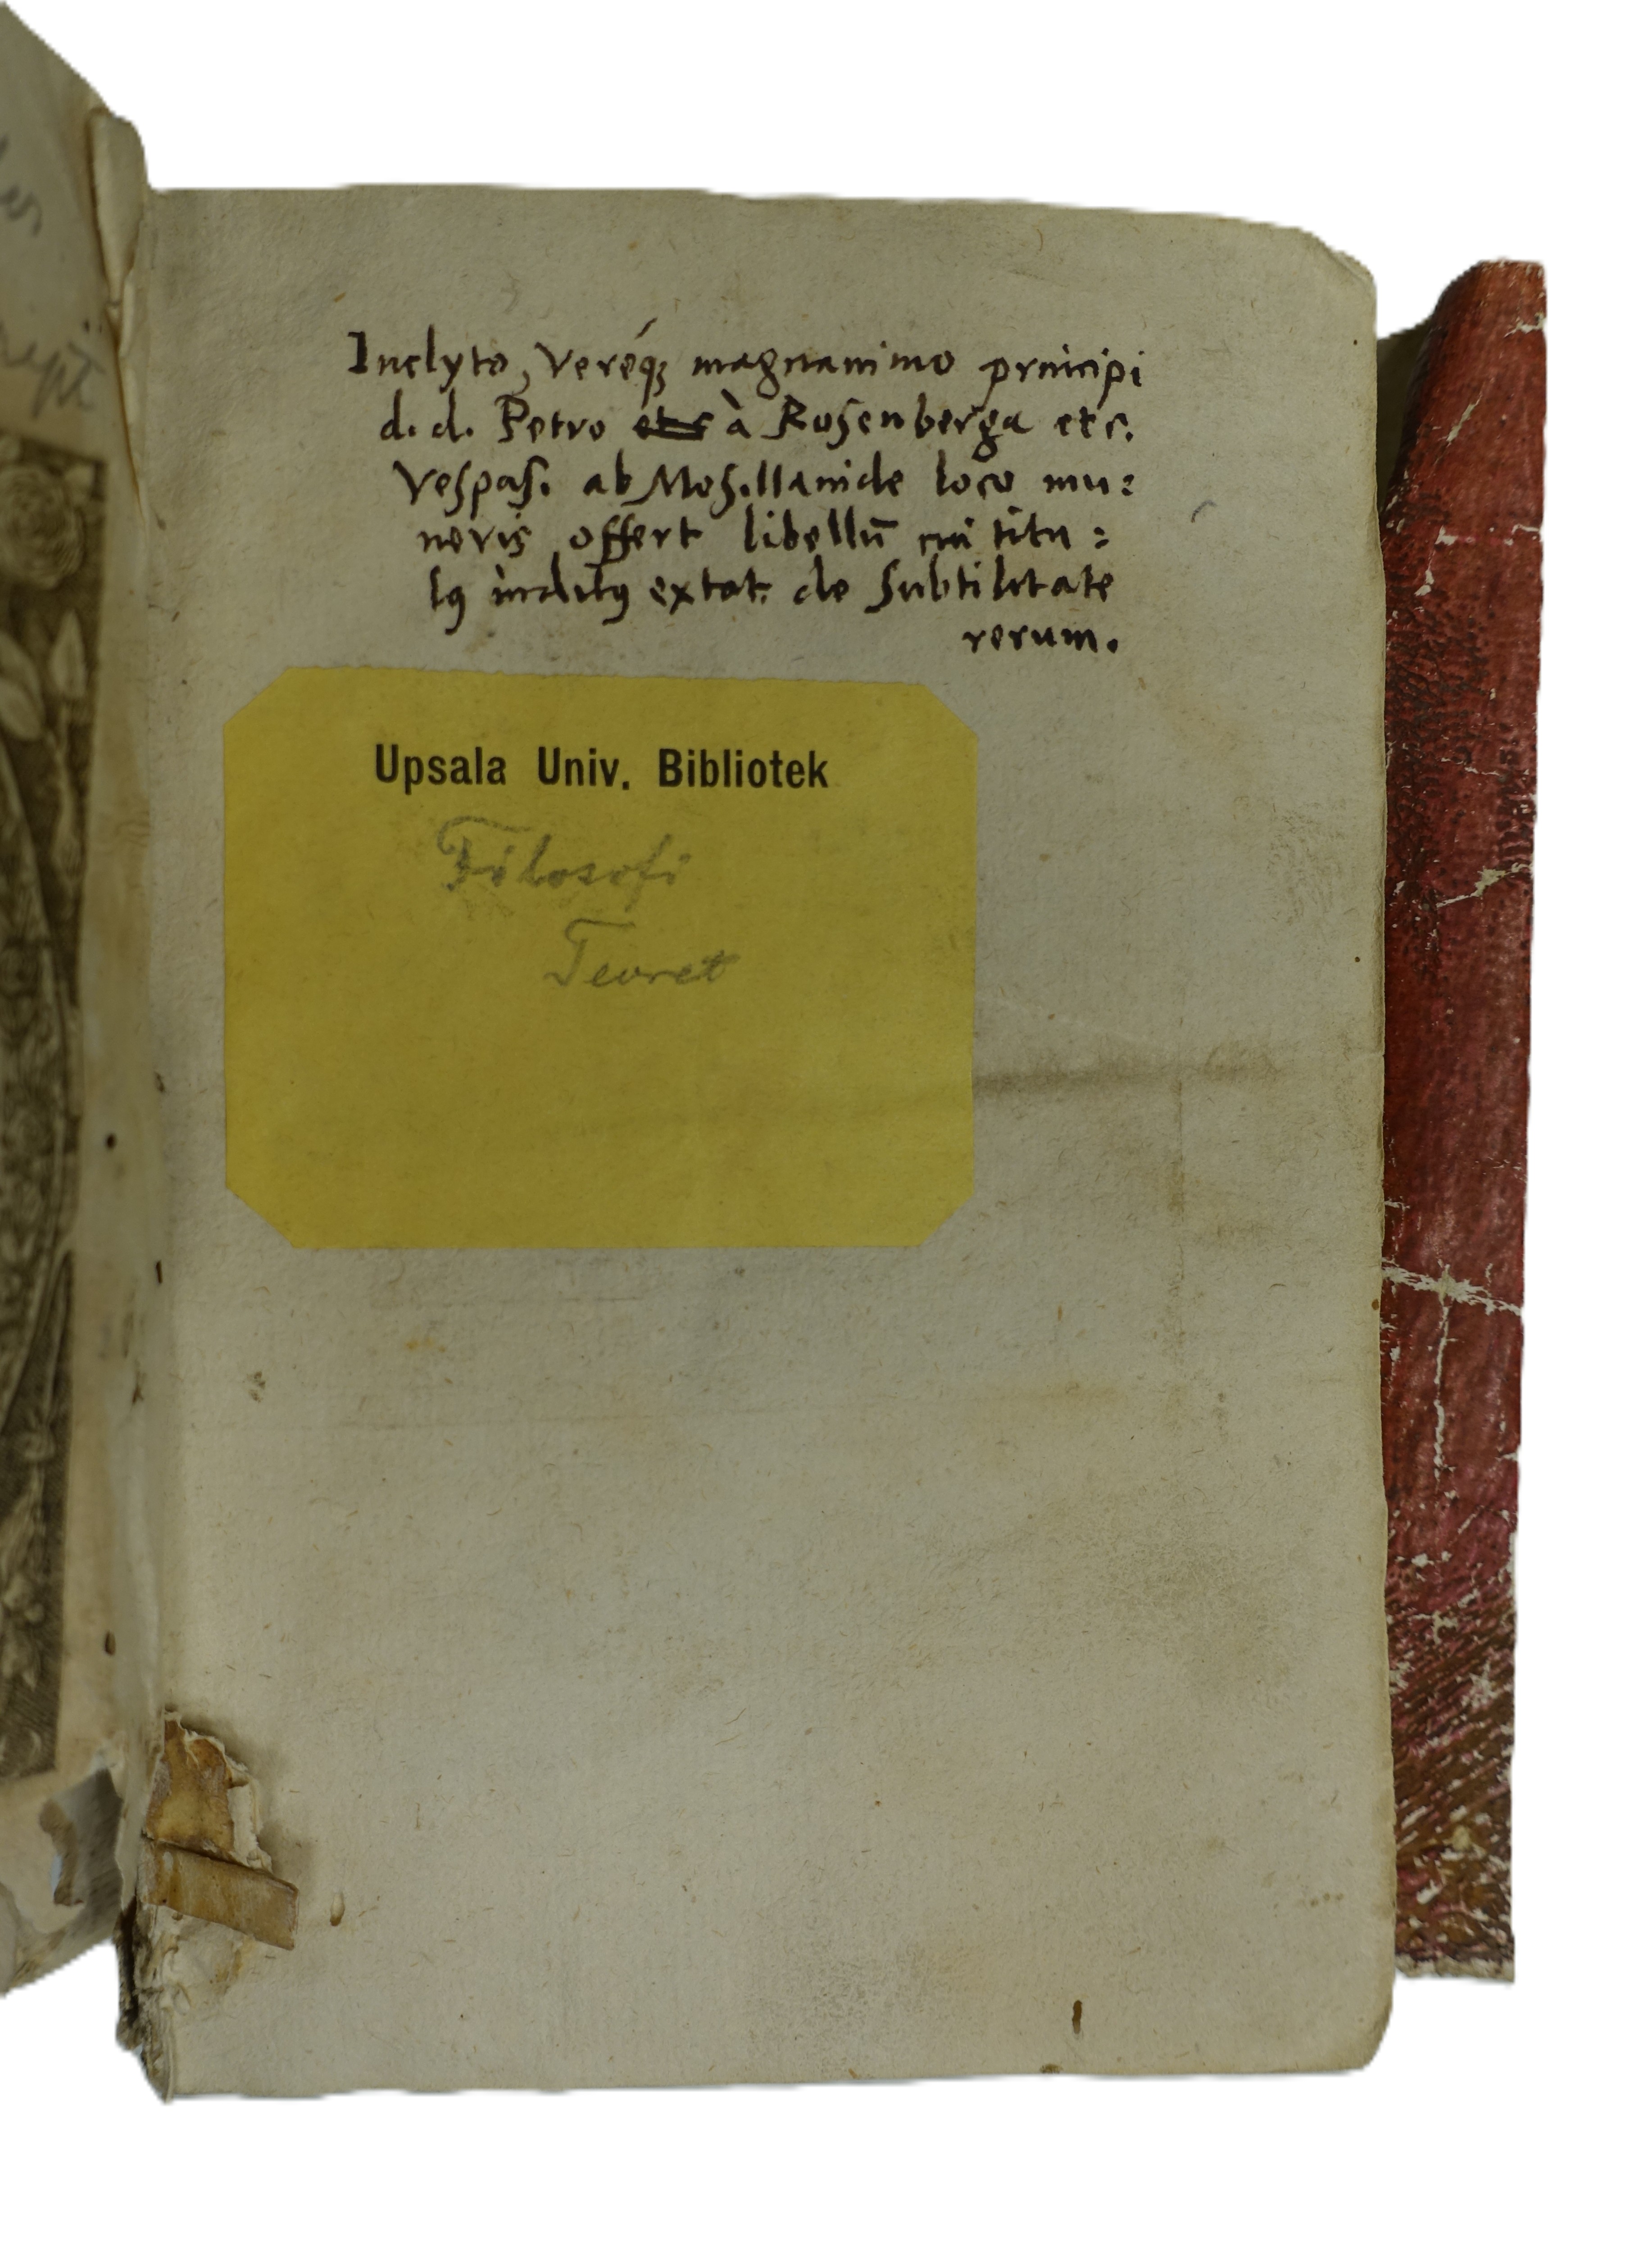 Inclyto, Veréq; magnanimo principi
d. d. Petro etc à Rosenberga etc.
Vespas. ab Mosillanide loco mu:
neris offert libellū cui titu:
lꝰ inditꝰ extat de Subtilitate
rerum.
Upsala Univ. Bibliotek
Filosofi
Teoret